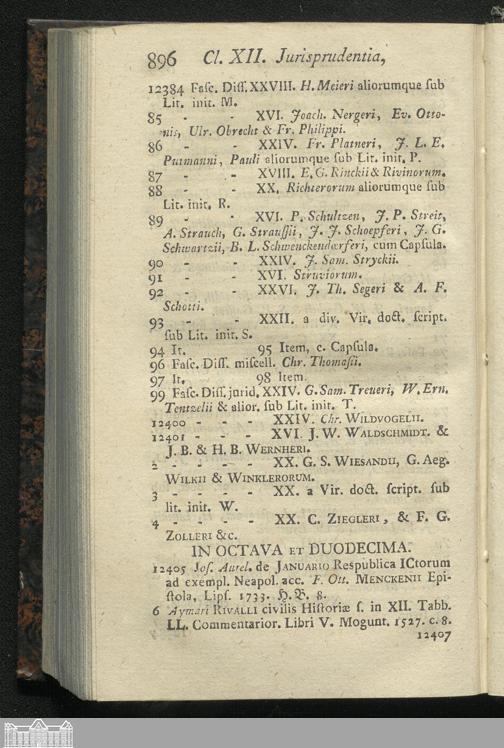 896 Cl. XII. Jurisprudentia,
12384 Fasc. Diss. XXVIII. H. Meieri aliorumque sub
Lit. init. M.
85 - - XVI. Joach. Nergeri, Ev. Otto-
nis, Ulr. Obrecht & Fr. Philippi.
86 - - XXIV. Fr. Platneri, J. L. E.
Putmanni, Pauli aliorumque sub Lit. init. P.
87 - - XVIII. E. G. Rinckii & Rivinorum.
88 - - XX. Richterorum aliorumque sub
Lit. init. R.
89 - - XVI. P. Schultzen, J. P. Streit,
A. Strauch, G. Straussii, J. J. Schoepferi, J. G.
Schwartzii, B. L. Schwenckendœrferi, cum Capsula.
90 - - XXIV. J. Sam. Stryckii.
91 - - XVI. Struviorum.
92 - - XXVI. J. Th. Segeri & A. F.
Schotti.
93 - - XXII. a div. Vir. doct. script.
sub Lit. init. S.
94 It. 95 Item, c. Capsula.
96 Fasc. Diss. miscell. Chr. Thomasii.
97 It. 98 Item.
99 Fasc. Diss. jurid. XXIV. G. Sam. Treueri, W. Ern.
Tentzelii & alior. sub Lit. init. T.
12400 - - - XXIV. Chr. WILDVOGELII.
12401 - - - XVI. J. W. WALDSCHMIDT. &
J. B. & H. B. WERNHERI.
2 - - - - XX. G. S. WIESANDII, G. Aeg.
WILKII & WINKLERORUM.
3 - - - - XX. a Vir. doct. script. sub
lit. init. W.
4 - - - - XX. C. ZIEGLERI, & F. G.
ZOLLERI &c.
IN OCTAVA ET DUODECIMA.
12405 Jos. Aurel. de JANUARIO Respublica ICtorum
ad exempl. Neapol. acc. F. Ott. MENCKENII Epi-
stola, Lips. 1733. H. B. 8.
6 Aymari RIVALLI civilis Historiæ s. in XII. Tabb.
LL. Commentarior. Libri V. Mogunt. 1527. c. 8.
12407